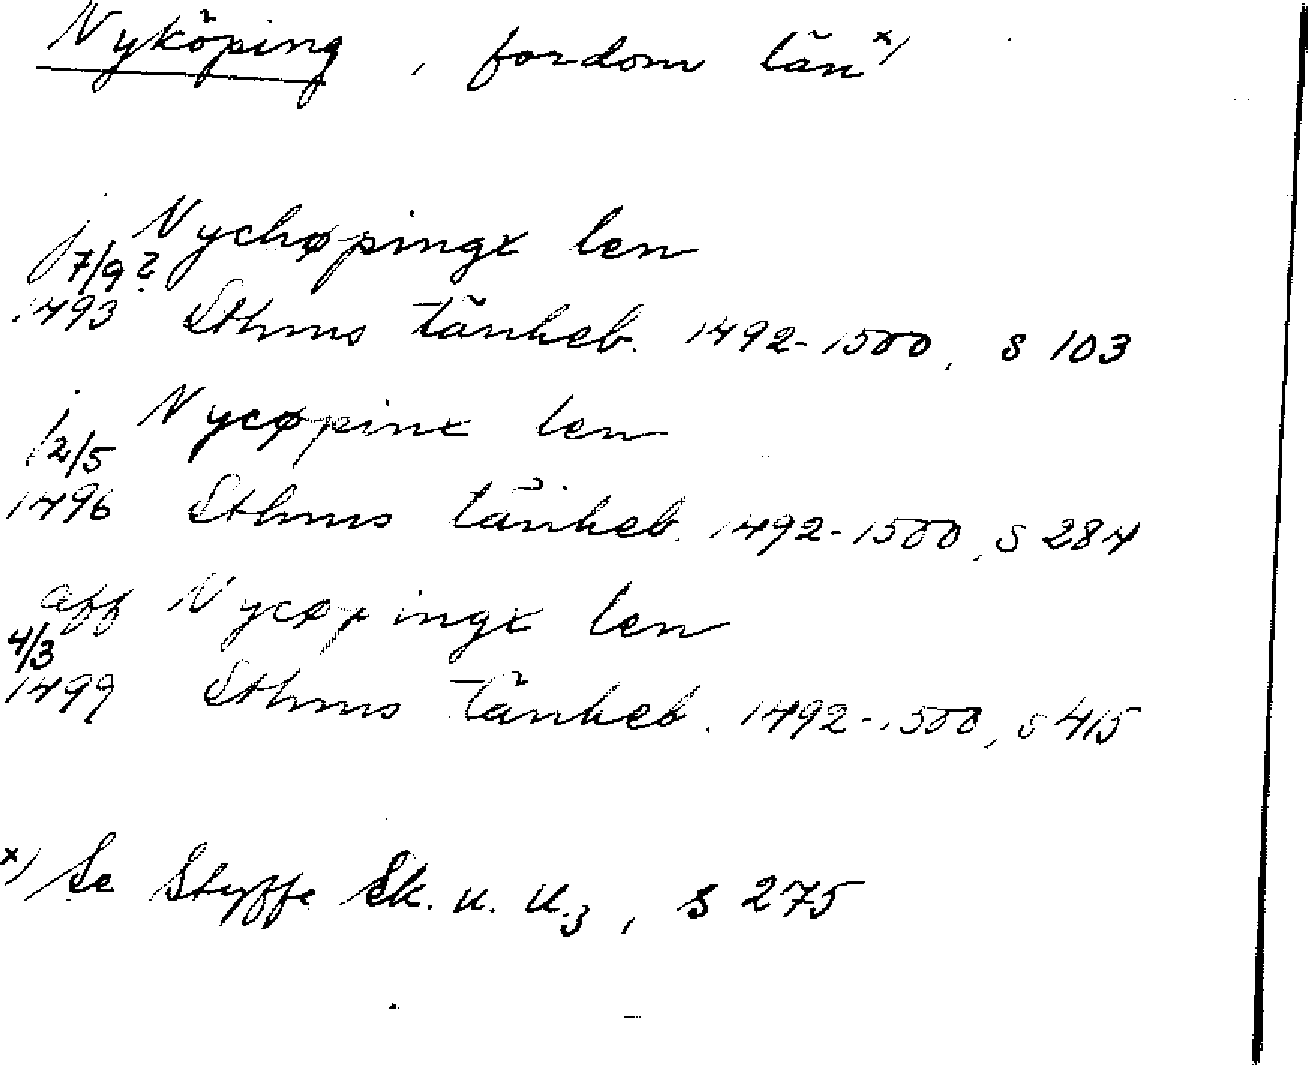 Nyköping, fordom län x)
j Nychøpingx len
7/9? 1493 Sthms tänkeb. 1492-1500, s 103
j Nycøpinx len
12/5 1496 Sthms tänkeb. 1492-1500, s 284
aff Nycøpingx len
4/3 1499 Sthms tänkeb. 1492-1500, s 415
x) Se Styffe Sk. u. u.3, s 275